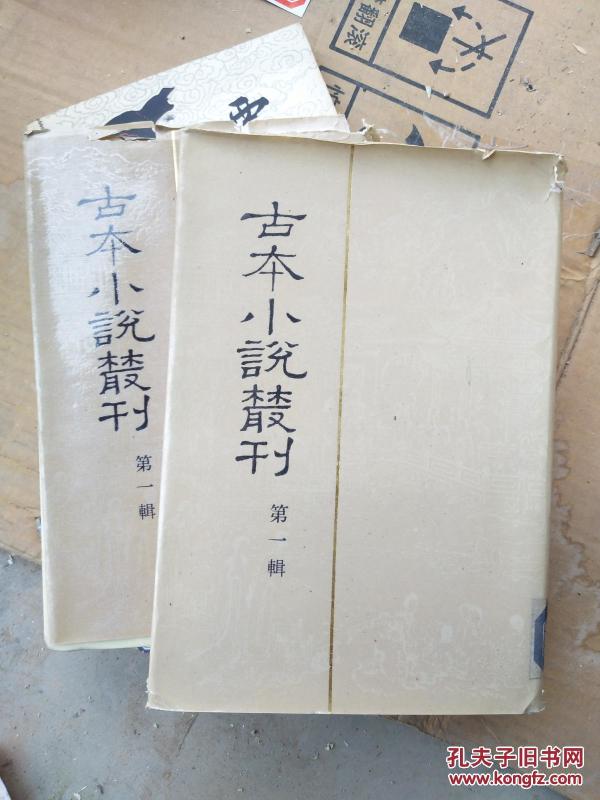 古本小說叢刊
第一輯
古本小說叢刊
第一輯
翻滚
孔夫子旧书网
www.kongfz.com